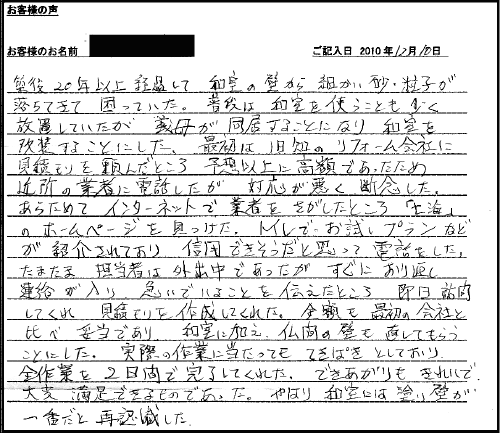 お客様の声
お客様のお名前 ご記入日 2010年12月10日
築後20年以上経過して 和室の壁から細かい砂・粒子が
落ちてきて 困っていた。普段は 和室を使うことも少く
放置していたが 義母が同居することになり 和室を
改装することにした。最初は 旧知のリフォーム会社に
見積もりを頼んだところ 予想以上に高額であったため
近所の業者に電話したが 対応が悪く 断念した。
あらためて インターネットで 業者を さがしたところ
のホームページを見つけた。トイレで お試しプランなど
が紹介されており 信用できそうだと思って 電話をした。
たまたま 担当者は 外出中であったが すぐに おり返し
連絡が入り 急いでいることを伝えたところ 即日訪問
してくれ 見積もりを作成してくれた。金額も最初の会社と
比べ 妥当であり 和室に加え 仏間の壁も直してもらう
ことにした。実際の作業に当たっても てきぱきとしており
全作業を2日間で完了してくれた。できあがりもきれいで
大変 満足できるものであった。やはり 和室には塗り壁が
一番だと再認識した。